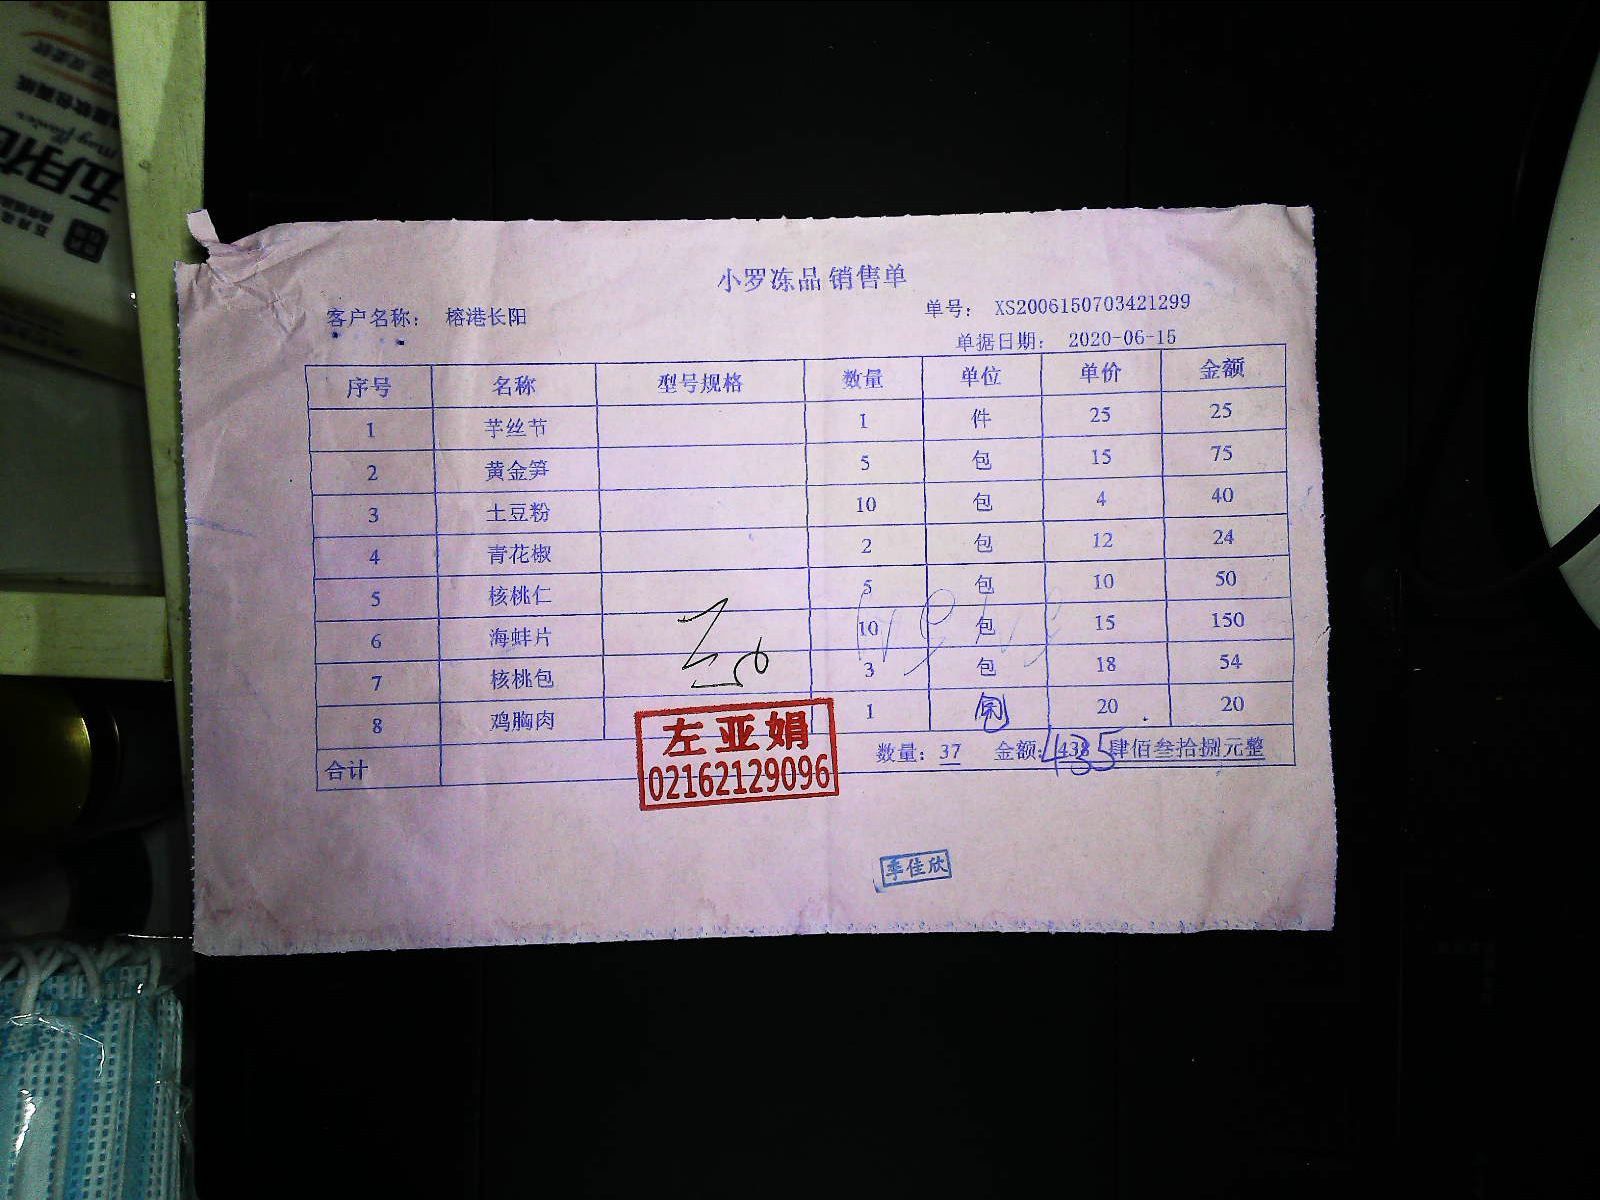 五月花
小罗冻品 销售单
客户名称： 榕港长阳
单号： XS2006150703421299
单据日期： 2020-06-15
序号 名称 型号规格 数量 单位 单价 金额
1 芋丝节 1 件 25 25
2 黄金笋 5 包 15 75
3 土豆粉 10 包 4 40
4 青花椒 2 包 12 24
5 核桃仁 5 包 10 50
6 海蚌片 10 包 15 150
7 核桃包 3 包 18 54
8 鸡胸肉 1 20 20
合计 数量：37 金额：438 肆佰叁拾捌元整
435
左亚娟
02162129096
季佳欣